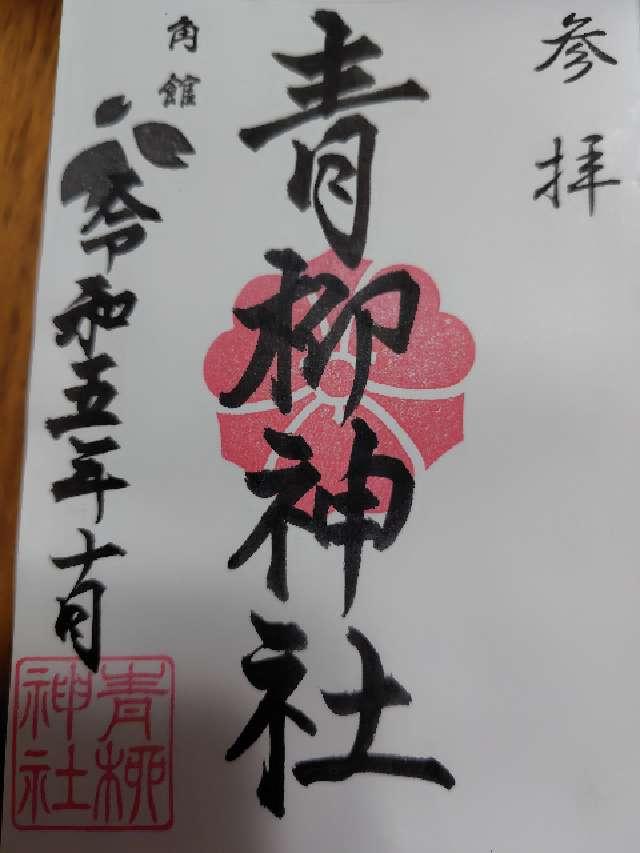 参拝
青柳神社
角館
令和五年十月
青柳
神社